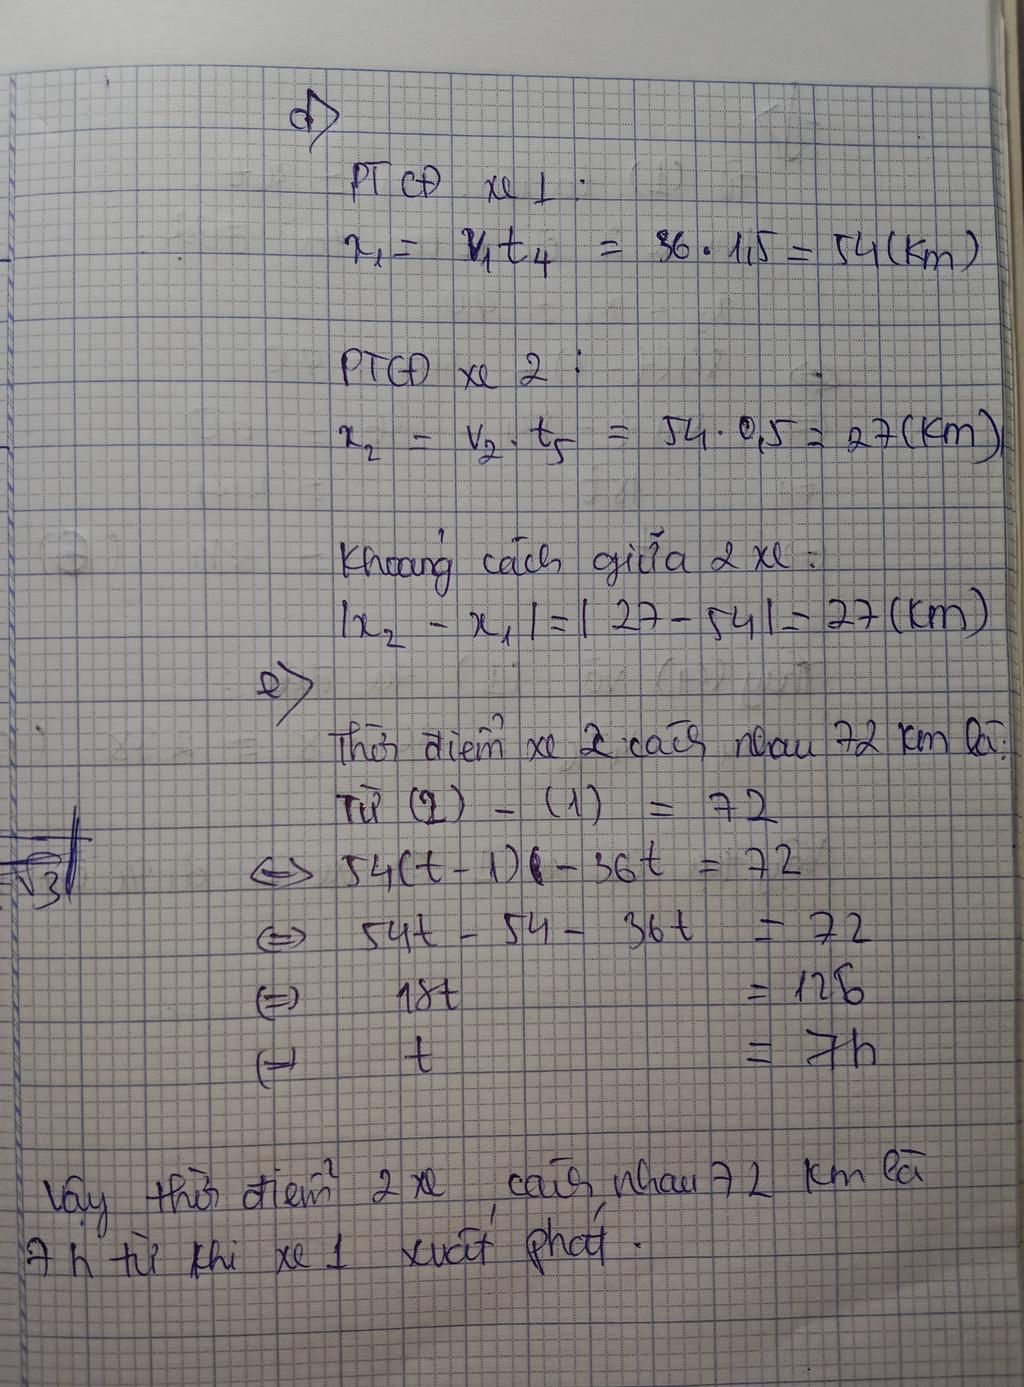 d>
PTCĐ xe 1 :
x₁ = v₁t₄ = 36 . 1,5 = 54 (km)
PTCĐ xe 2 :
x₂ = v₂ . t₅ = 54 . 0,5 = 27 (km)
Khoảng cách giữa 2 xe :
|x₂ - x₁| = | 27 - 54 | = 27 (km)
e>
Thời điểm xe 2 cách nhau 72 km là:
Từ (2) - (1) = 72
⇔ 54(t - 1) - 36t = 72
⇔ 54t - 54 - 36t = 72
⇔ 18t = 126
⇔ t = 7h
√3
Vậy thời điểm 2 xe cách nhau 72 km là
7 h từ khi xe 1 xuất phát.